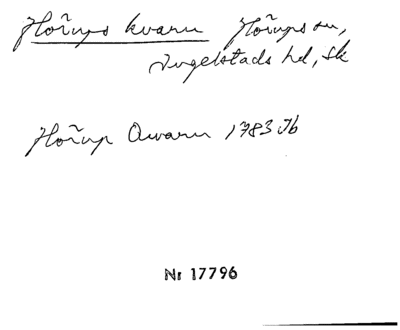 Hörups kvarn Hörups sn,
Ingelstads hd, Sk
Hörup Qwarn 1783 Jb
Nr 17796